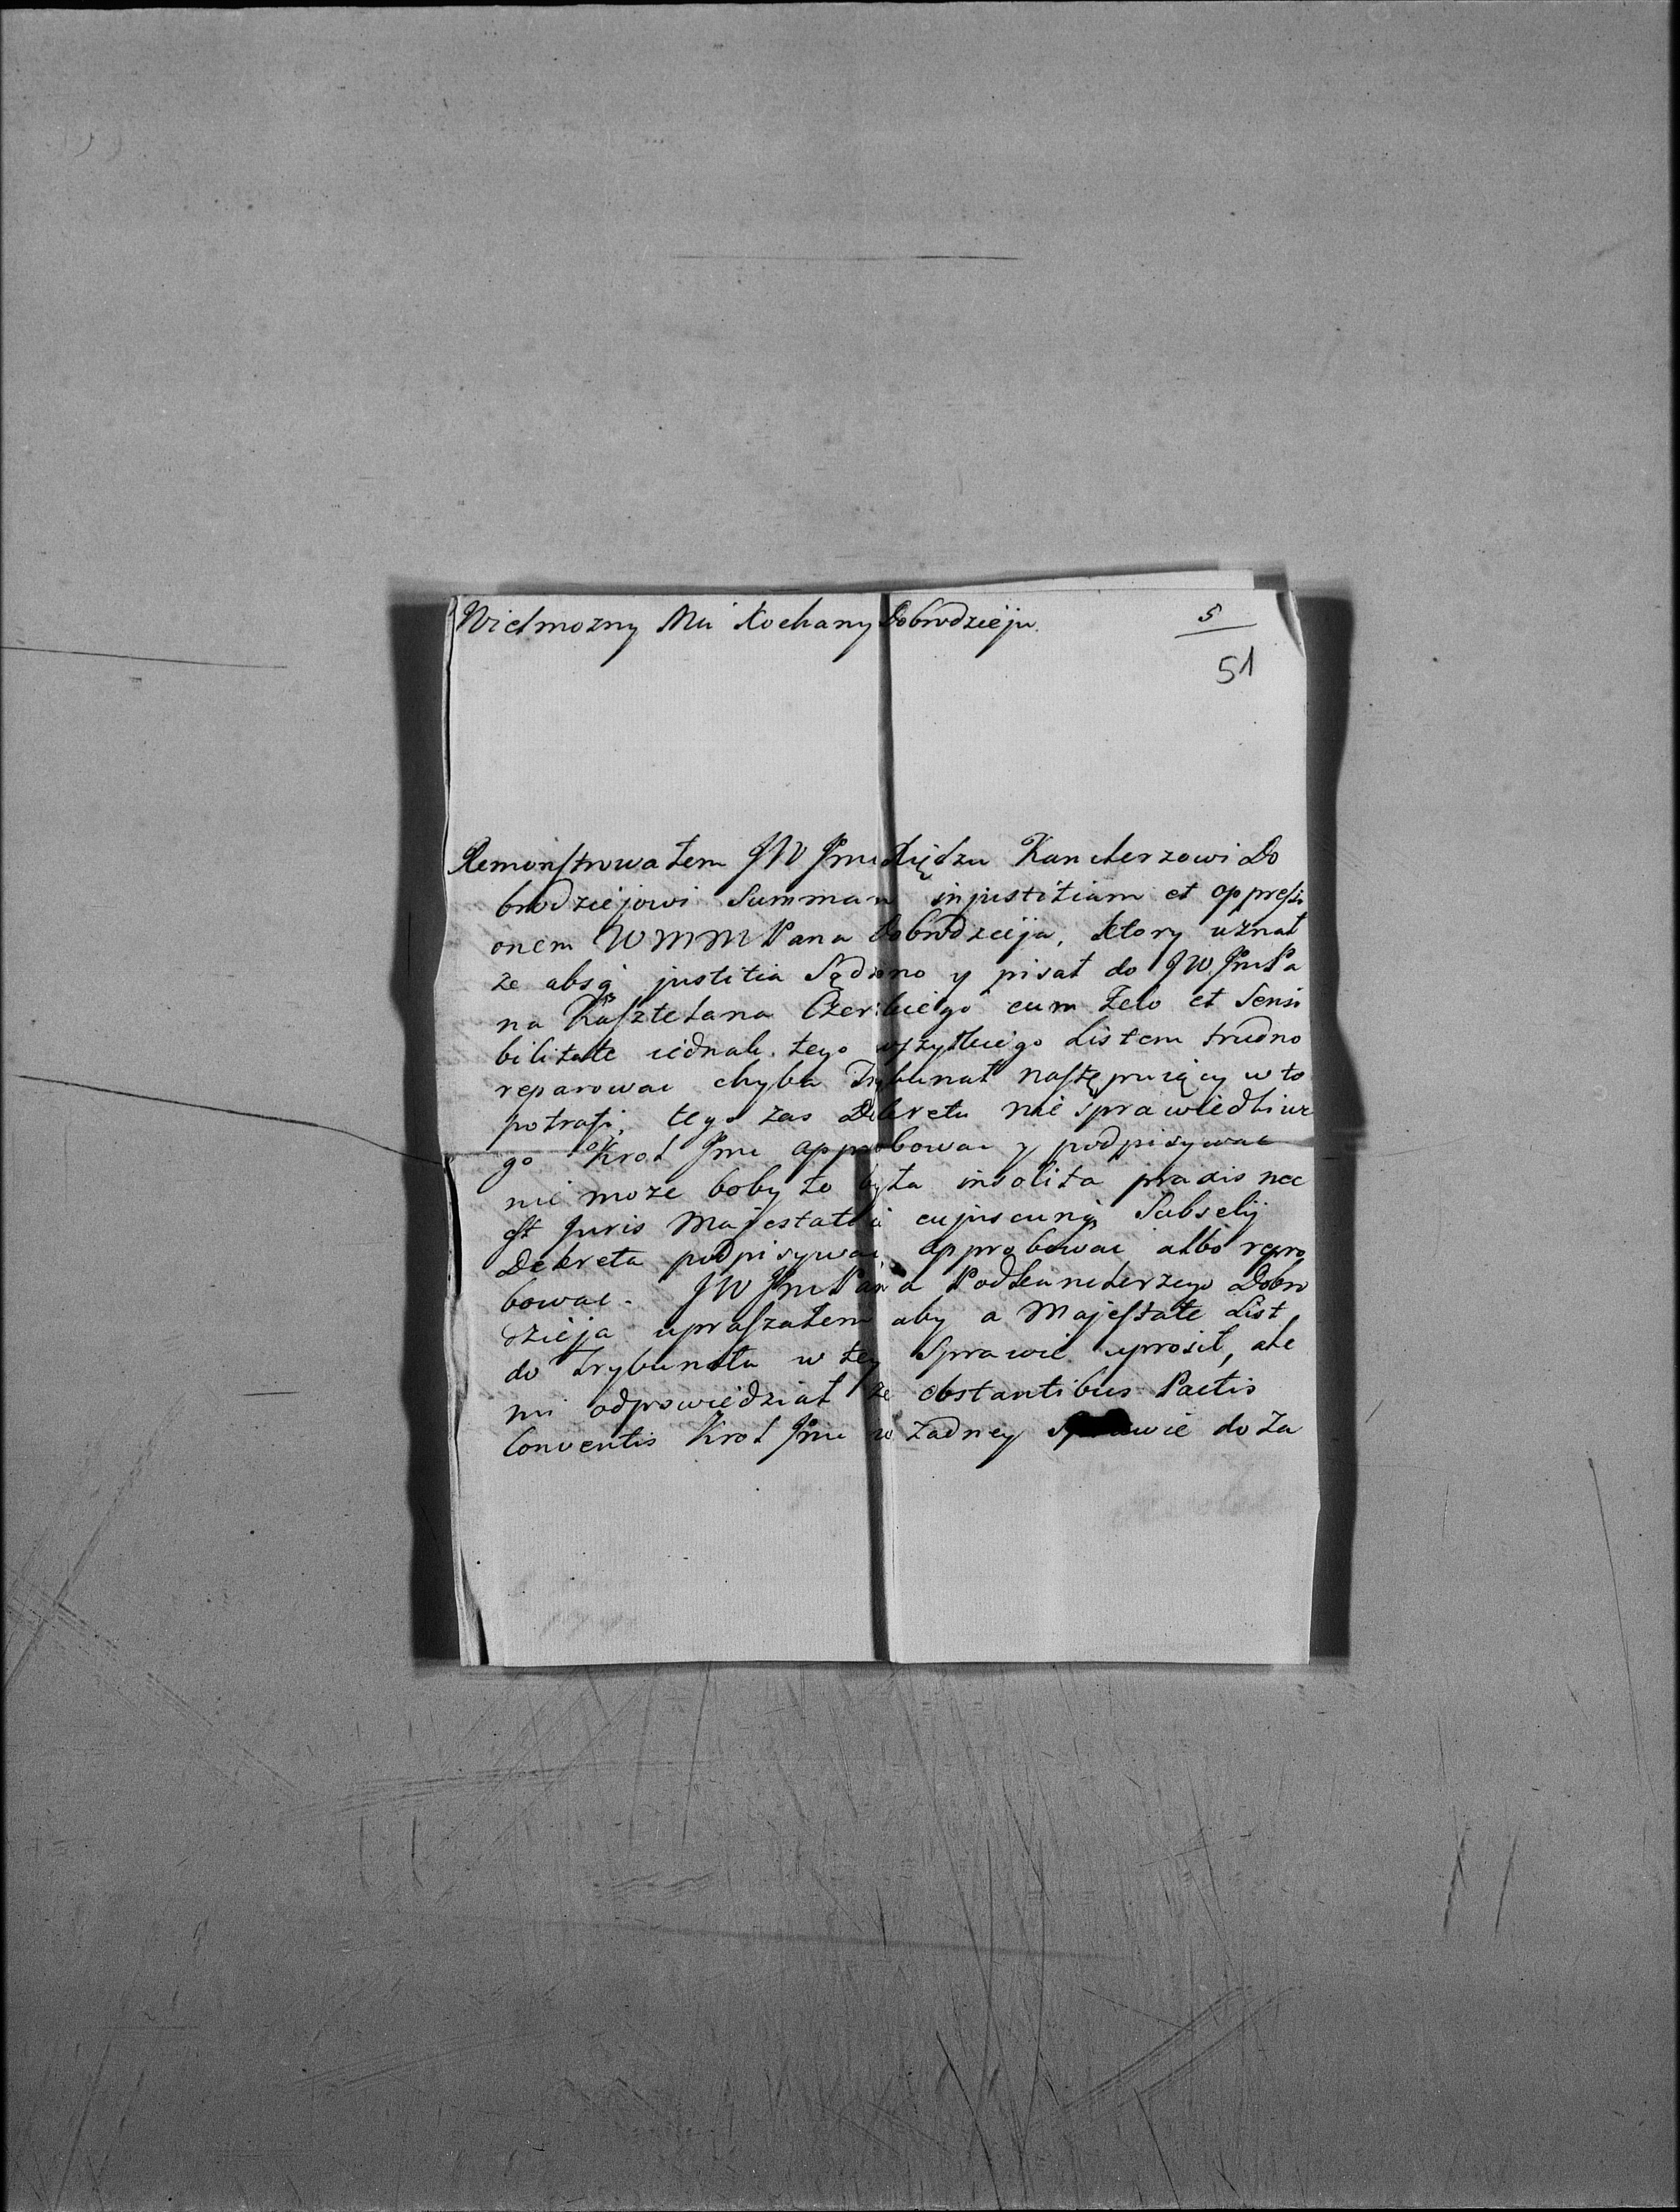 Wielmozny Mci Kochany Dobrodzieju.
5
51
Remonstrowałem JW Jmci Xiędzu Kanclerzowi Do
brodziejowi Summam injustitiam et oppressi
onem WMM Pana Dobrodzieja, ktory uznał
ze absq justitia Sądzono y pisał do JW JmcPa
na Kasztelana Czerskiego cum Zelo et Sensi
bilitate iednak tego wszytkiego Listem trudno
reparowac chyba Trybunał następuiący w to
potrafi, tego zas Dekretu nie sprawiedliwe
go Krol Jmc approbowac y podpisywac
nie moze boby to była insolita praxis nec
est Juris Majestatis cujuscunq Subselij
Dekreta podpisywac, approbowac albo repro
bowac. JW JmcPana Podkanclerzego Dobro
dzieja upraszałem aby a Majestate List
do Trybunału w tey Sprawie uprosił, ale
mi odpowiedział ze obstantibus Pactis
Conventis Krol Jmc w zadney Sprawie do za